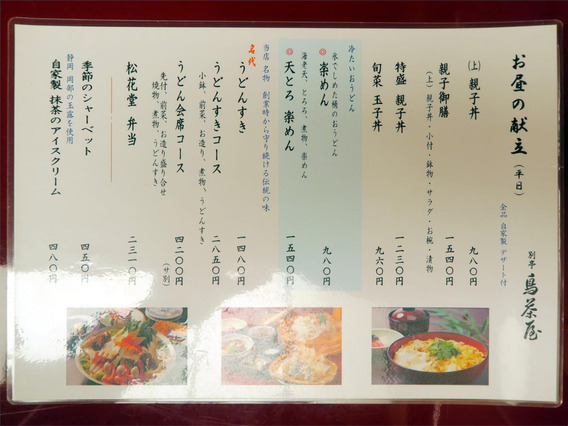 お昼の献立（平日）
全品 自家製 デザート付
別亭 鳥茶屋
（上）親子丼 九八〇円
親子御膳 一五四〇円
（上）親子丼・小付・鉢物・サラダ・お椀・漬物
特盛 親子丼 一二三〇円
旬菜 玉子丼 九六〇円
冷たいおうどん
氷でしめた桶のおうどん
◎楽めん 九八〇円
海老天、とろろ、煮物、楽めん
◎天とろ 楽めん 一五四〇円
当店 名物 創業時から守り続ける伝統の味
名代
うどんすき 一四八〇円
うどんすきコース 二八五〇円
小鉢、前菜、お造り、煮物、うどんすき
うどん会席コース 四二〇〇円（サ別）
先付、前菜、お造り盛り合せ
焼物、煮物、うどんすき
松花堂 弁当 二三一〇円
季節のシャーベット 四五〇円
静岡 岡部の玉露を使用
自家製 抹茶のアイスクリーム 四八〇円